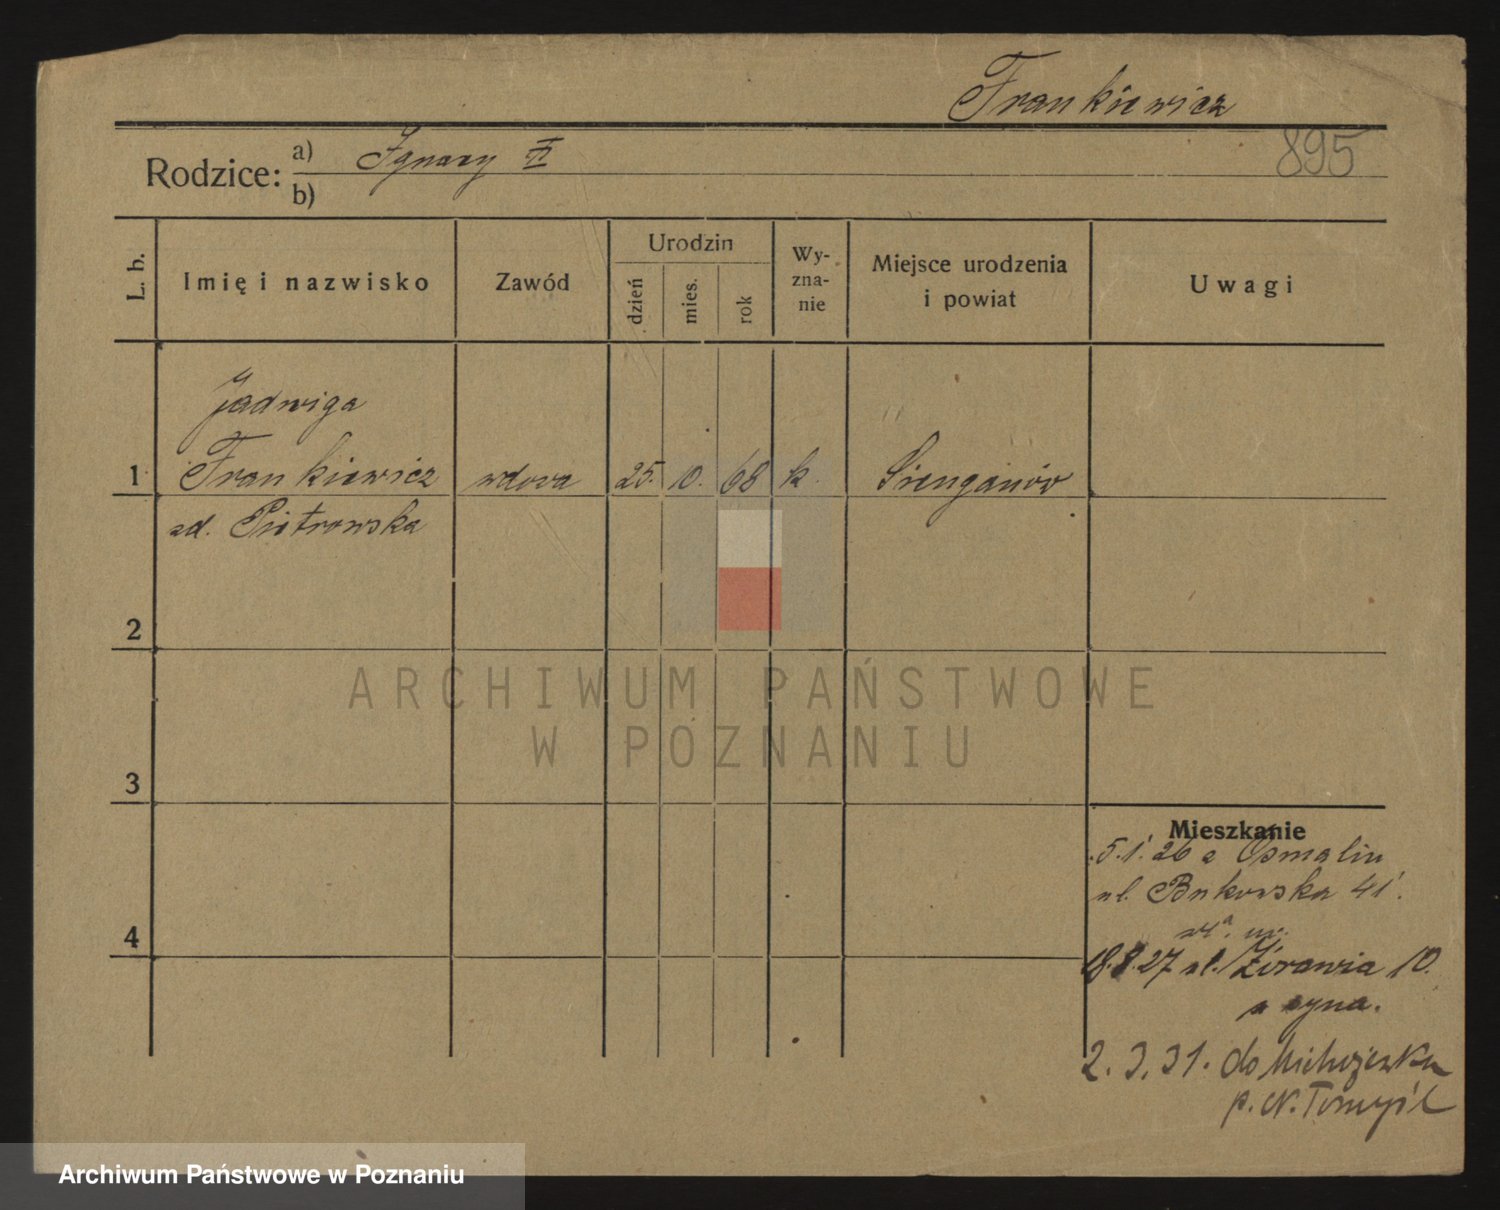 Frankiewicz
895
Rodzice: a) Ignacy II
b)
L. b.
Imię i nazwisko
Zawód
Urodzin
dzień
mies.
rok
Wy-
zna-
nie
Miejsce urodzenia
i powiat
Uwagi
Jadwiga
1 Frankiewicz wdowa 25. 10. 68 k.
zd. Piotrowska
2
3
4
ARCHIWUM PAŃSTWOWE
W POZNANIU
Mieszkanie
5.1.26 z Osmalin
ul. Bukowska 41
18.8.27 ul. Żórawia 10.
u syna.
2.3.31. do
p. N. Tomyśl
Archiwum Państwowe w Poznaniu